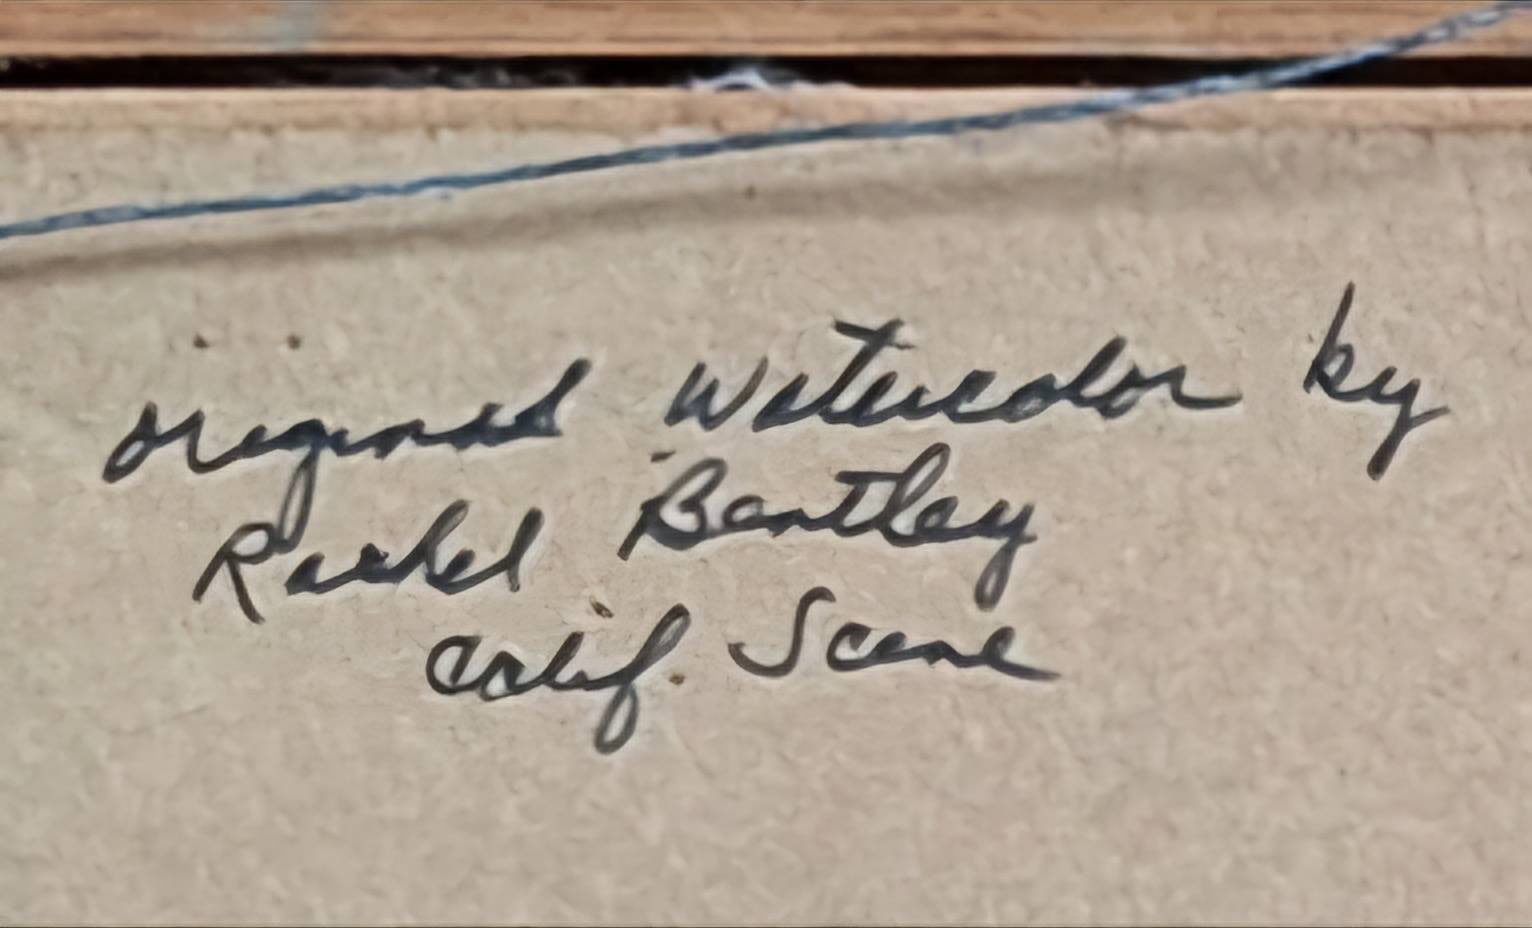 Original Watercolor by
Rachel Bentley
Calif. Scene